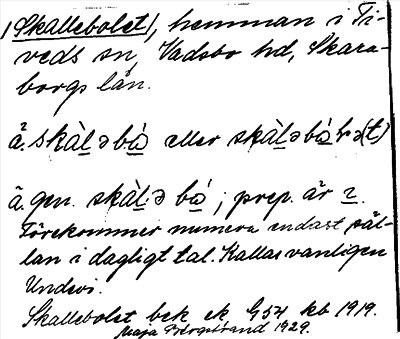 /Skallebolet/, hemman i Ti-
veds sn, Vadsbo hd, Skara-
borgs län.
å. skàl ə bó eller skàləbó ə(t)
ä. gen. skàl ə bó; prep. är
Förekommer numera endast säl-
lan i dagligt tal. Kallas vanligen
Undevi.
Skallebolet bek ek G54 kb 1919.
Maja Bergstrand 1929.